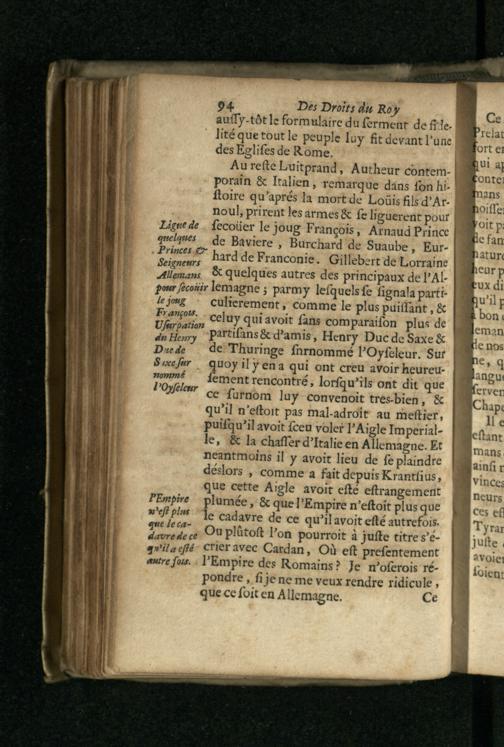 94 Des Droits du Roy
auſſy-tôt le formulaire du ſerment de fide-
lité que tout le peuple luy fit devant l'une
des Egliſes de Rome.
Au reſte Luitprand, Autheur contem-
porain & Italien, remarque dans ſon hi-
ſtoire qu'aprés la mort de Loüis fils d'Ar-
noul, prirent les armes & ſe liguerent pour
ſecoüer le joug François, Arnaud Prince
de Baviere, Burchard de Suaube, Eur-
hard de Franconie. Gillebert de Lorraine
& quelques autres des principaux de l'Al-
lemagne; parmy leſquels ſe ſignala parti-
culierement, comme le plus puiſſant, &
celuy qui avoit ſans comparaiſon plus de
partiſans & d'amis, Henry Duc de Saxe &
de Thuringe ſnrnommé l'Oyſeleur. Sur
quoy il y en a qui ont creu avoir heureu-
ſement rencontré, lorſqu'ils ont dit que
ce ſurnom luy convenoit tres-bien, &
qu'il n'eſtoit pas mal-adroit au meſtier,
puiſqu'il avoit ſceu voler l'Aigle Imperial-
le, & la chaſſer d'Italie en Allemagne. Et
neantmoins il y avoit lieu de ſe plaindre
déslors, comme a fait depuis Krantſius,
que cette Aigle avoit eſté eſtrangement
plumée, & que l'Empire n'eſtoit plus que
le cadavre de ce qu'il avoit eſté autrefois.
Ou plûtoſt l'on pourroit à juſte titre s'é-
crier avec Cardan, Où eſt preſentement
l'Empire des Romains? Je n'oſerois ré-
pondre, ſi je ne me veux rendre ridicule,
que ce ſoit en Allemagne. Ce
Ligue de
quelques
Princes &
Seigneurs
Allemans
pour ſecoüir
le joug
François.
Uſurpation
du Henry
Duc de
Saxe ſur
nommé
l'Oyſeleur
l'Empire
n'eſt plus
que le ca-
davre de ce
qu'il a eſté
autre fois.